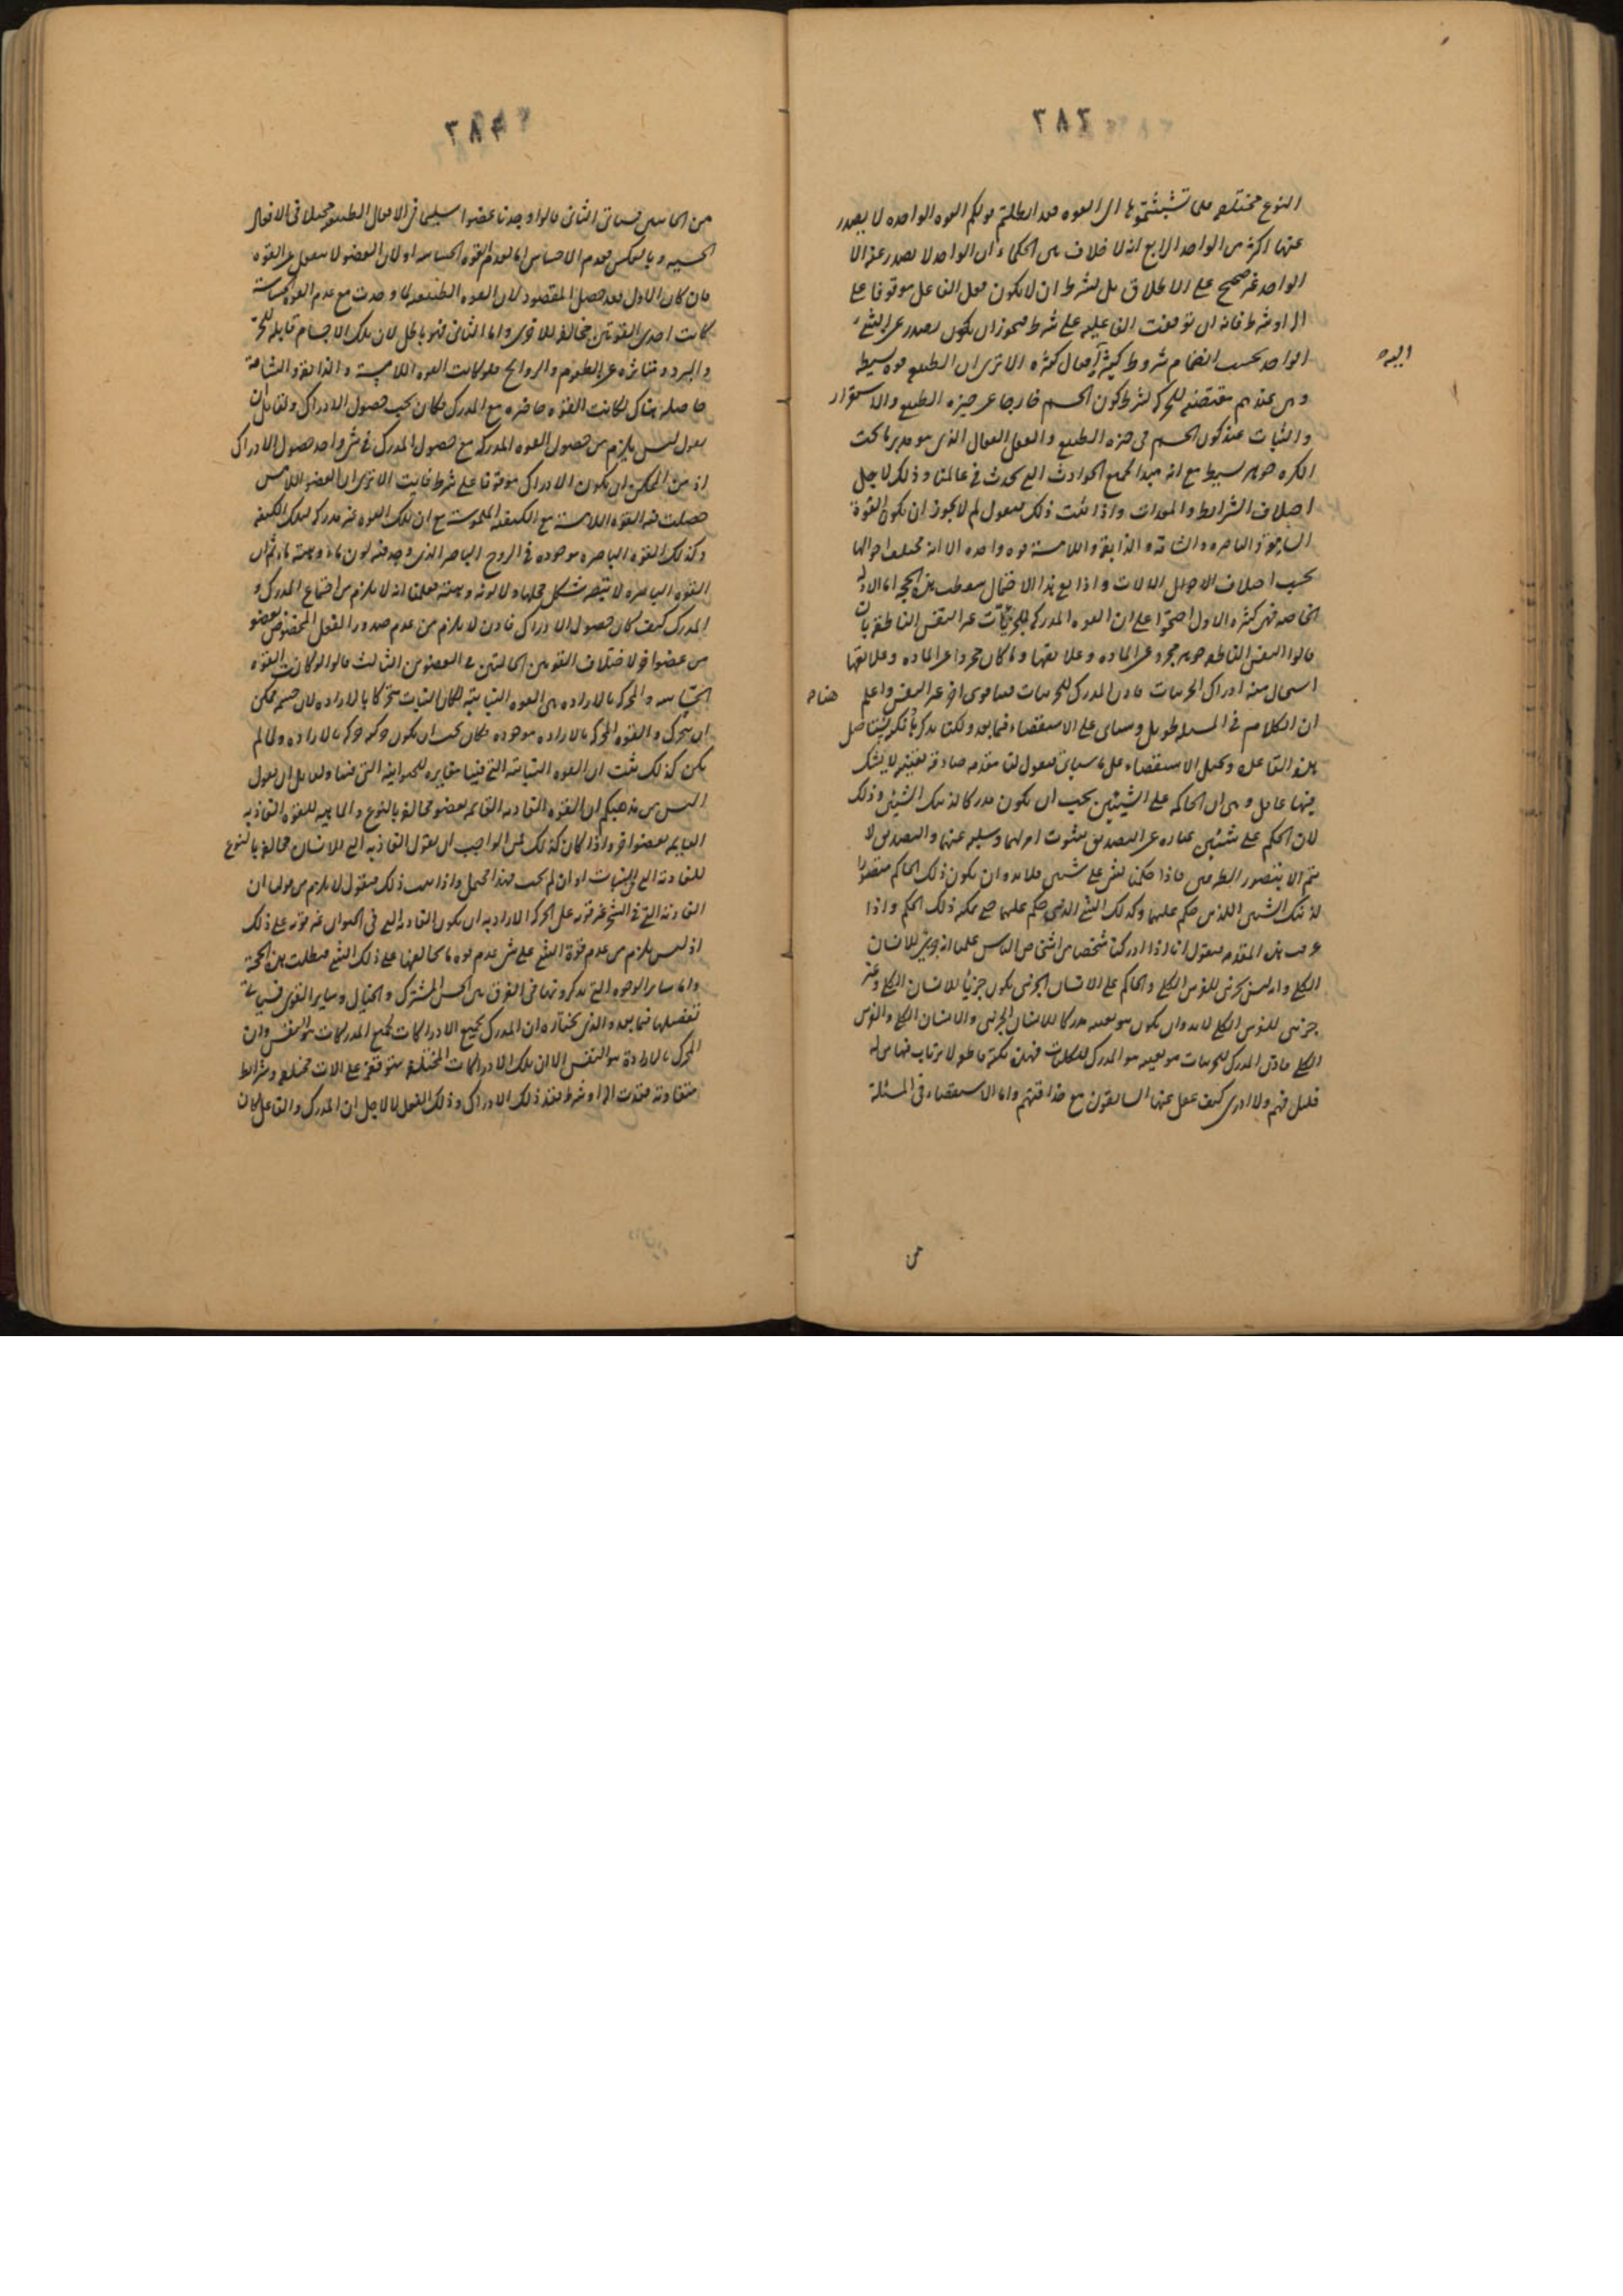 ٢٨٣
النوع مختلفه فلئن تشبثتم بها الى القوه فقد ابطلتم قولكم القوه الواحده لا يصدر
عنها اكثر من الواحد الرابع انه لا خلاف بين الحكماء ان الواحد لا يصدر عنه الا
الواحد غير صحيح على الاطلاق بل بشرط ان لا يكون فعل الفاعل موقوفا على
اله او شرط فانه ان توقفت الفاعليه على شرط فيجوز ان يكون يصدر عن الشئ
الواحد بحسب انضمام شروط كثيرة افعال كثيره الا ترى ان الطبيعه قوه بسيطه
وهى عندهم مقتضيه للحركه بشرط كون الجسم خارجا عن حيزه الطبيعى والاستقرار
والثبات عند كون الجسم فى حيزه الطبيعى والعقل الفعال الذى هو مدبر ما تحت
الكره جوهر بسيط مع انه مبدا لجميع الحوادث التى تحدث فى عالمنا وذلك لاجل
اختلاف الشرايط والمعدات واذا ثبت ذلك فنقول لم لا يجوز ان يكون القوة
السامعة والباصره والشامه والذايقه واللامسة قوه واحده الا انه مختلف احوالها
بحسب اختلاف الالات واذا بقى هذا الاحتمال سقطت هذه الحجه اما الادله
الخاصه فهى كثيره الاول احتجوا على ان القوه المدركه للجزئيات غير النفس الناطقه بان
قالوا النفس الناطقه جوهر مجرد عن الماده وعلايقها وما كان مجردا عن الماده وعلايقها
استحال منه ادراك الجزئيات فاذن المدرك للجزئيات فينا قوى اخر غير النفس واعلم
هناه
ان الكلام فى المسله طويل وسياتى على الاستقصاء فيما بعد ولكنا نذكر
هذه القاعدة وبحيل الاستقصاء على ما سياتى فنقول لنا مقدمه صادقه يقينيه لا يشك
فيها عاقل وهى ان الحاكم على الشيئين يجب ان يكون مدركا لذينك الشيئين وذلك
لان الحكم على شيئين عباره عن التصديق بثبوت امر لهما وسلبه عنهما والتصديق لا
يتم الا بتصور الطرفين فاذا حكمنا بشئ على شئ فلا بد وان يكون ذلك الحاكم متصورا
لذينك الشيئين اللذين حكم عليهما وكذلك الشئ الذى حكم عليهما حتى يمكنه ذلك الحكم واذا
عرفت هذه المقدمه فنقول انا اذا ادركنا شخصا من اشخاص الناس علمنا انه جزئى للانسان
الكلى وانه ليس بجزئى للفرس الكلى والحاكم على الانسان الجزئى بكونه جزئيا للانسان الكلى وغير
جزئى للفرس الكلى لا بد وان يكون هو بعينه مدركا للانسان الجزئى والانسان الكلى والفرس
الكلى فاذن المدرك للجزئيات هو بعينه هو المدرك للكليات فهذه نكتة قاطعه لا يرتاب فيها من له
قليل فهم ولا ادرى كيف غفل عنها السابقون مع حذاقتهم واما الاستقصاء فى المسئلة
من
٢٨٤
من الحاستين فسياتى الثانى قالوا وجدنا عضوا سليما فى الافعال الطبيعيه مختلا فى الافعال
الحسيه وبالعكس فعدم الاحساس اما لعدم القوه الحساسه او لان العضو لا ينفعل عن القوه
فان كان الاول فقد حصل المقصود لان القوه الطبيعيه لما وجدت مع عدم القوه الحساسة
كانت احدى القوتين مخالفة للاخرى واما الثانى فهو باطل لان تلك الاجسام قابله للحر
والبرد ومتاثره عن الطعوم والروايح فلو كانت القوه اللامسة والذايقه والشامة
حاصله هناك لكانت القوه حاضره مع المدرك فكان يجب حصول الادراك ولقايل ان
يقول ليس يلزم من حصول القوه المدركه مع حصول المدرك فى شئ واحد حصول الادراك
اذ من الممكن ان يكون الادراك موقوفا على شرط فايت الا ترى ان العضو اللامس
حصلت فيه القوه اللامسة مع الكيفية الملموسة مع ان تلك القوه غير مدركه لتلك الكيفيه
وكذلك القوه الباصره موجوده فى الروح الباصر الذى وجد فيه لون ما وهيئة ما ثم ان
القوه الباصره لا تبصر شكل محلها ولا لونه وهيئته فعلمنا انه لا يلزم من اجتماع المدرك و
المدرك كيف كان حصول الادراك فاذن لا يلزم من عدم صدور الفعل المخصوص بعضو
من عضو اخر لاختلاف القوتين الحالتين فى العضوين الثالث قالوا لو كانت القوه
الحساسه والمحركه بالاراده هى القوه النباتيه لكان النبات متحركا بالاراده لان جسمه ممكن
ان يتحرك والقوه المحركه بالاراده موجوده فكان يجب ان يكون حركته حركه بالاراده ولما لم
يكن كذلك ثبت ان القوه النباتيه التى فينا مغايره للحيوانيه التى فينا ولقايل ان يقول
اليس من مذهبكم ان القوه الغاذيه القايمه بعضو مخالفه بالنوع والماهيه للقوه الغاذيه
القايمه بعضو اخر واذا كان كذلك فمن الواجب ان يقول الغاذيه التى للانسان مخالفه بالنوع
للغاذيه التى للنبات او ان لم يجب فهذا محتمل واذا ثبت ذلك فنقول لا يلزم من قولنا ان
الغاذيه التى فى الشجر غير قويه على الحركه الاراديه ان يكون الغاذيه التى فى الحيوان غير قويه على ذلك
اذ ليس يلزم من عدم قوة الشئ على شئ عدم قوه ما يخالفها على ذلك الشئ فبطلت هذه الحجة
واما ساير الوجوه التى يذكرونها فى الفرق بين الحس المشترك والخيال وساير القوى فسياتى
تفصيلها فيما بعد والذى نختاره ان المدرك بجميع الادراكات لجميع المدركات هو النفس وان
المحرك بالارادة هو النفس الا ان تلك الادراكات المختلفه متوقفة على الات مختلفه وشرايط
متفاوته فقدت اله او شرط فقد ذلك الادراك وذلك الفعل لا لاجل ان المدرك والفاعل كان